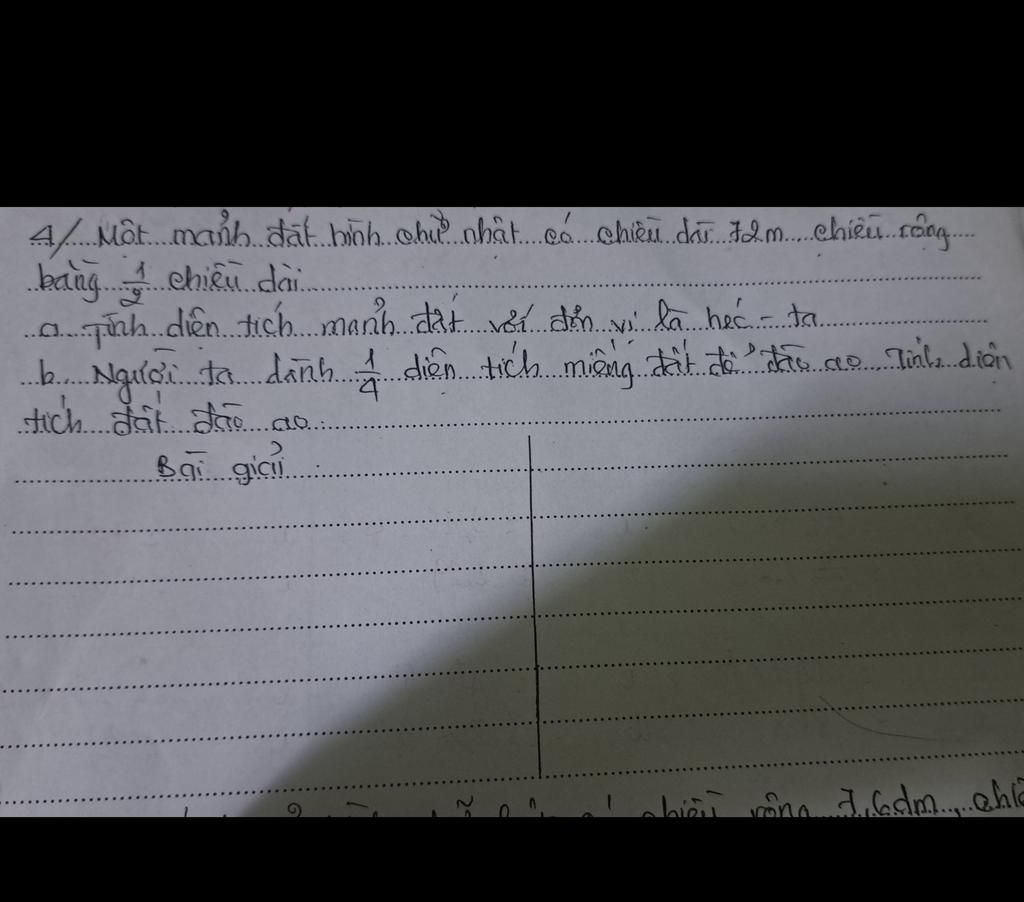 4/ Một mảnh đất hình chữ nhật có chiều dài 72m chiều rộng
bằng 1/2 chiều dài
a Tính diện tích mảnh đất với đơn vị là héc-ta
b. Người ta dành 1/4 diện tích miếng đất để đào ao. Tính diện
tích đất đào ao.
Bài giải:
chiều rộng 7,6dm,